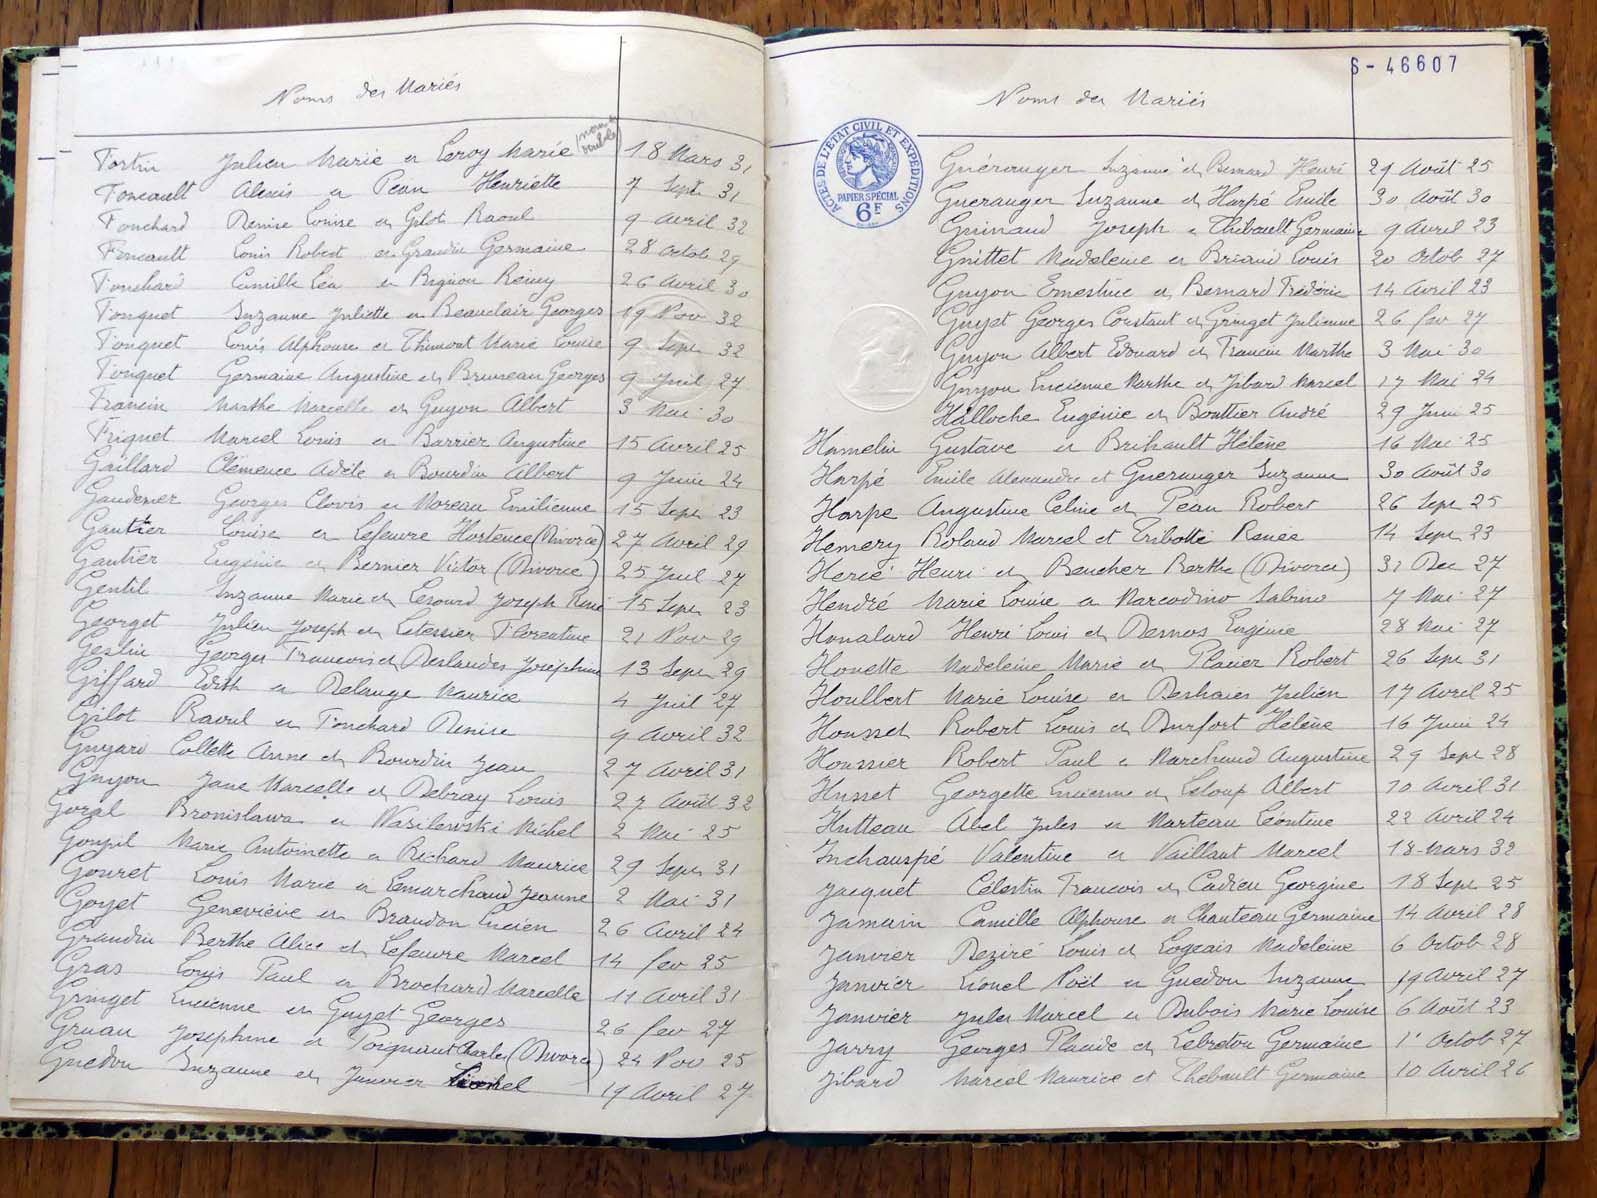 Noms des Mariés
Fortin Julien Marie et Leroy Marie 18 Mars 31
Foucault Alexis et Péan Henriette 7 Sept 31
Fouchard Denise Louise et Gilot Raoul 9 Avril 32
Foucault Louis Robert et Grandin Germaine 28 Octob 29
Fouchard Camille Léa et Pignon Rémy 26 Avril 30
Fouquet Suzanne Juliette et Beauclair Georges 19 Nov 32
Fouquet Louis Alphonse et Thimont Marie Louise 9 Sept 32
Fouquet Germaine Augustine et Bruneau Georges 9 Juil 27
Francin Marthe Marcelle et Guyon Albert 3 Mai 30
Friquet Marcel Louis et Barrier Augustine 15 Avril 25
Gaillard Clémence Adèle et Bourdin Albert 9 Juin 24
Gaudemer Georges Clovis et Moreau Emilienne 15 Sept 23
Gautier Louise et Lefeuvre Hortence (Divorce) 27 Avril 29
Gautier Eugénie et Bernier Victor (Divorce) 25 Juil 27
Gentil Suzanne Marie et Lesourd Joseph René 15 Sept 23
Georget Julien Joseph et Letessier Florentine 21 Nov 29
Geslin Georges Francois et Deslandes Joséphine 13 Sept 29
Giffard Edith et Delauge Maurice 4 Juil 27
Gilot Raoul et Fouchard Denise 9 Avril 32
Guyard Collette Anne et Bourdin Jean 27 Avril 31
Guyon Jane Marcelle et Debray Louis 27 Août 32
Goral Bronislawa et Wasilewski Michel 2 Mai 25
Goupil Marie Antoinette et Richard Maurice 29 Sept 31
Gouret Louis Marie et Lemarchand Jeanne 2 Mai 31
Goyet Geneviève et Braudon Lucien 26 Avril 24
Grandin Berthe Alice et Lefeuvre Marcel 14 fev 25
Gras Louis Paul et Brochard Marcelle 11 Avril 31
Gringet Lucienne et Guyet Georges 26 fev 27
Gruau Joséphine et Poignant Charles (Divorce) 24 Nov 25
Guédon Suzanne et Janvier Lionel 19 Avril 27
S-46607
Noms des Mariés
ACTES DE L'ETAT CIVIL ET EXPEDITIONS
PAPIER SPÉCIAL
6F
Guéranger Suzanne et Besnard Henri 29 Août 25
Gueranger Suzanne et Harpé Emile 30 Août 30
Guinaud Joseph et Thibault Germaine 9 Avril 23
Guittet Madeleine et Briand Louis 20 Octob 27
Guyon Ernestine et Besnard Frédéric 14 Avril 23
Guyet Georges Constant et Gringet Julienne 26 fev 27
Guyon Albert Edouard et Francin Marthe 3 Mai 30
Guyon Lucienne Marthe et Jibard Marcel 17 Mai 24
Halloche Eugénie et Bouttier André 29 Juin 25
Hamelin Gustave et Brihault Hélène 16 Mai 25
Harpé Emile Alexandre et Gueranger Suzanne 30 Août 30
Harpe Augustine Celine et Pean Robert 26 Sept 25
Hemery Roland Marcel et Tribotté Renée 14 Sept 23
Hercé Henri et Beucher Berthe (Divorce) 31 Dec 27
Hendré Marie Louise et Marcodino Sabino 7 Mai 27
Honalard Henri Louis et Desnos Eugénie 28 Mai 27
Houette Madeleine Marie et Planier Robert 26 Sept 31
Houlbert Marie Louise et Deshaies Julien 17 Avril 25
Housset Robert Louis et Durfort Hélène 16 Juin 24
Houssier Robert Paul et Marchand Augustine 29 Sept 28
Husset Georgette Lucienne et Leloup Albert 10 Avril 31
Hutteau Abel Jules et Marteau Léontine 22 Avril 24
Inchauspé Valentine et Vaillant Marcel 18 Mars 32
Jacquet Célestin Francois et Cadieu Georgine 18 Sept 25
Jamain Camille Alphonse et Chanteau Germaine 14 Avril 28
Janvier Deziré Louis et Logeais Madeleine 6 Octob 28
Janvier Lionel Noël et Guedon Suzanne 19 Avril 27
Janvier Jules Marcel et Dubois Marie Louise 6 Août 23
Jarry Georges Placide et Lebreton Germaine 1er Octob 27
Jibard Marcel Maurice et Thébault Germaine 10 Avril 26